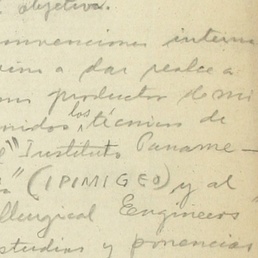 objetiva.
convenciones intern
vino a dar realce a
un productor de mi
nidos los técnicos de
el "Instituto Paname-
" (IPIMIGEO) y al
llurgical Engineers"
studios y ponencias